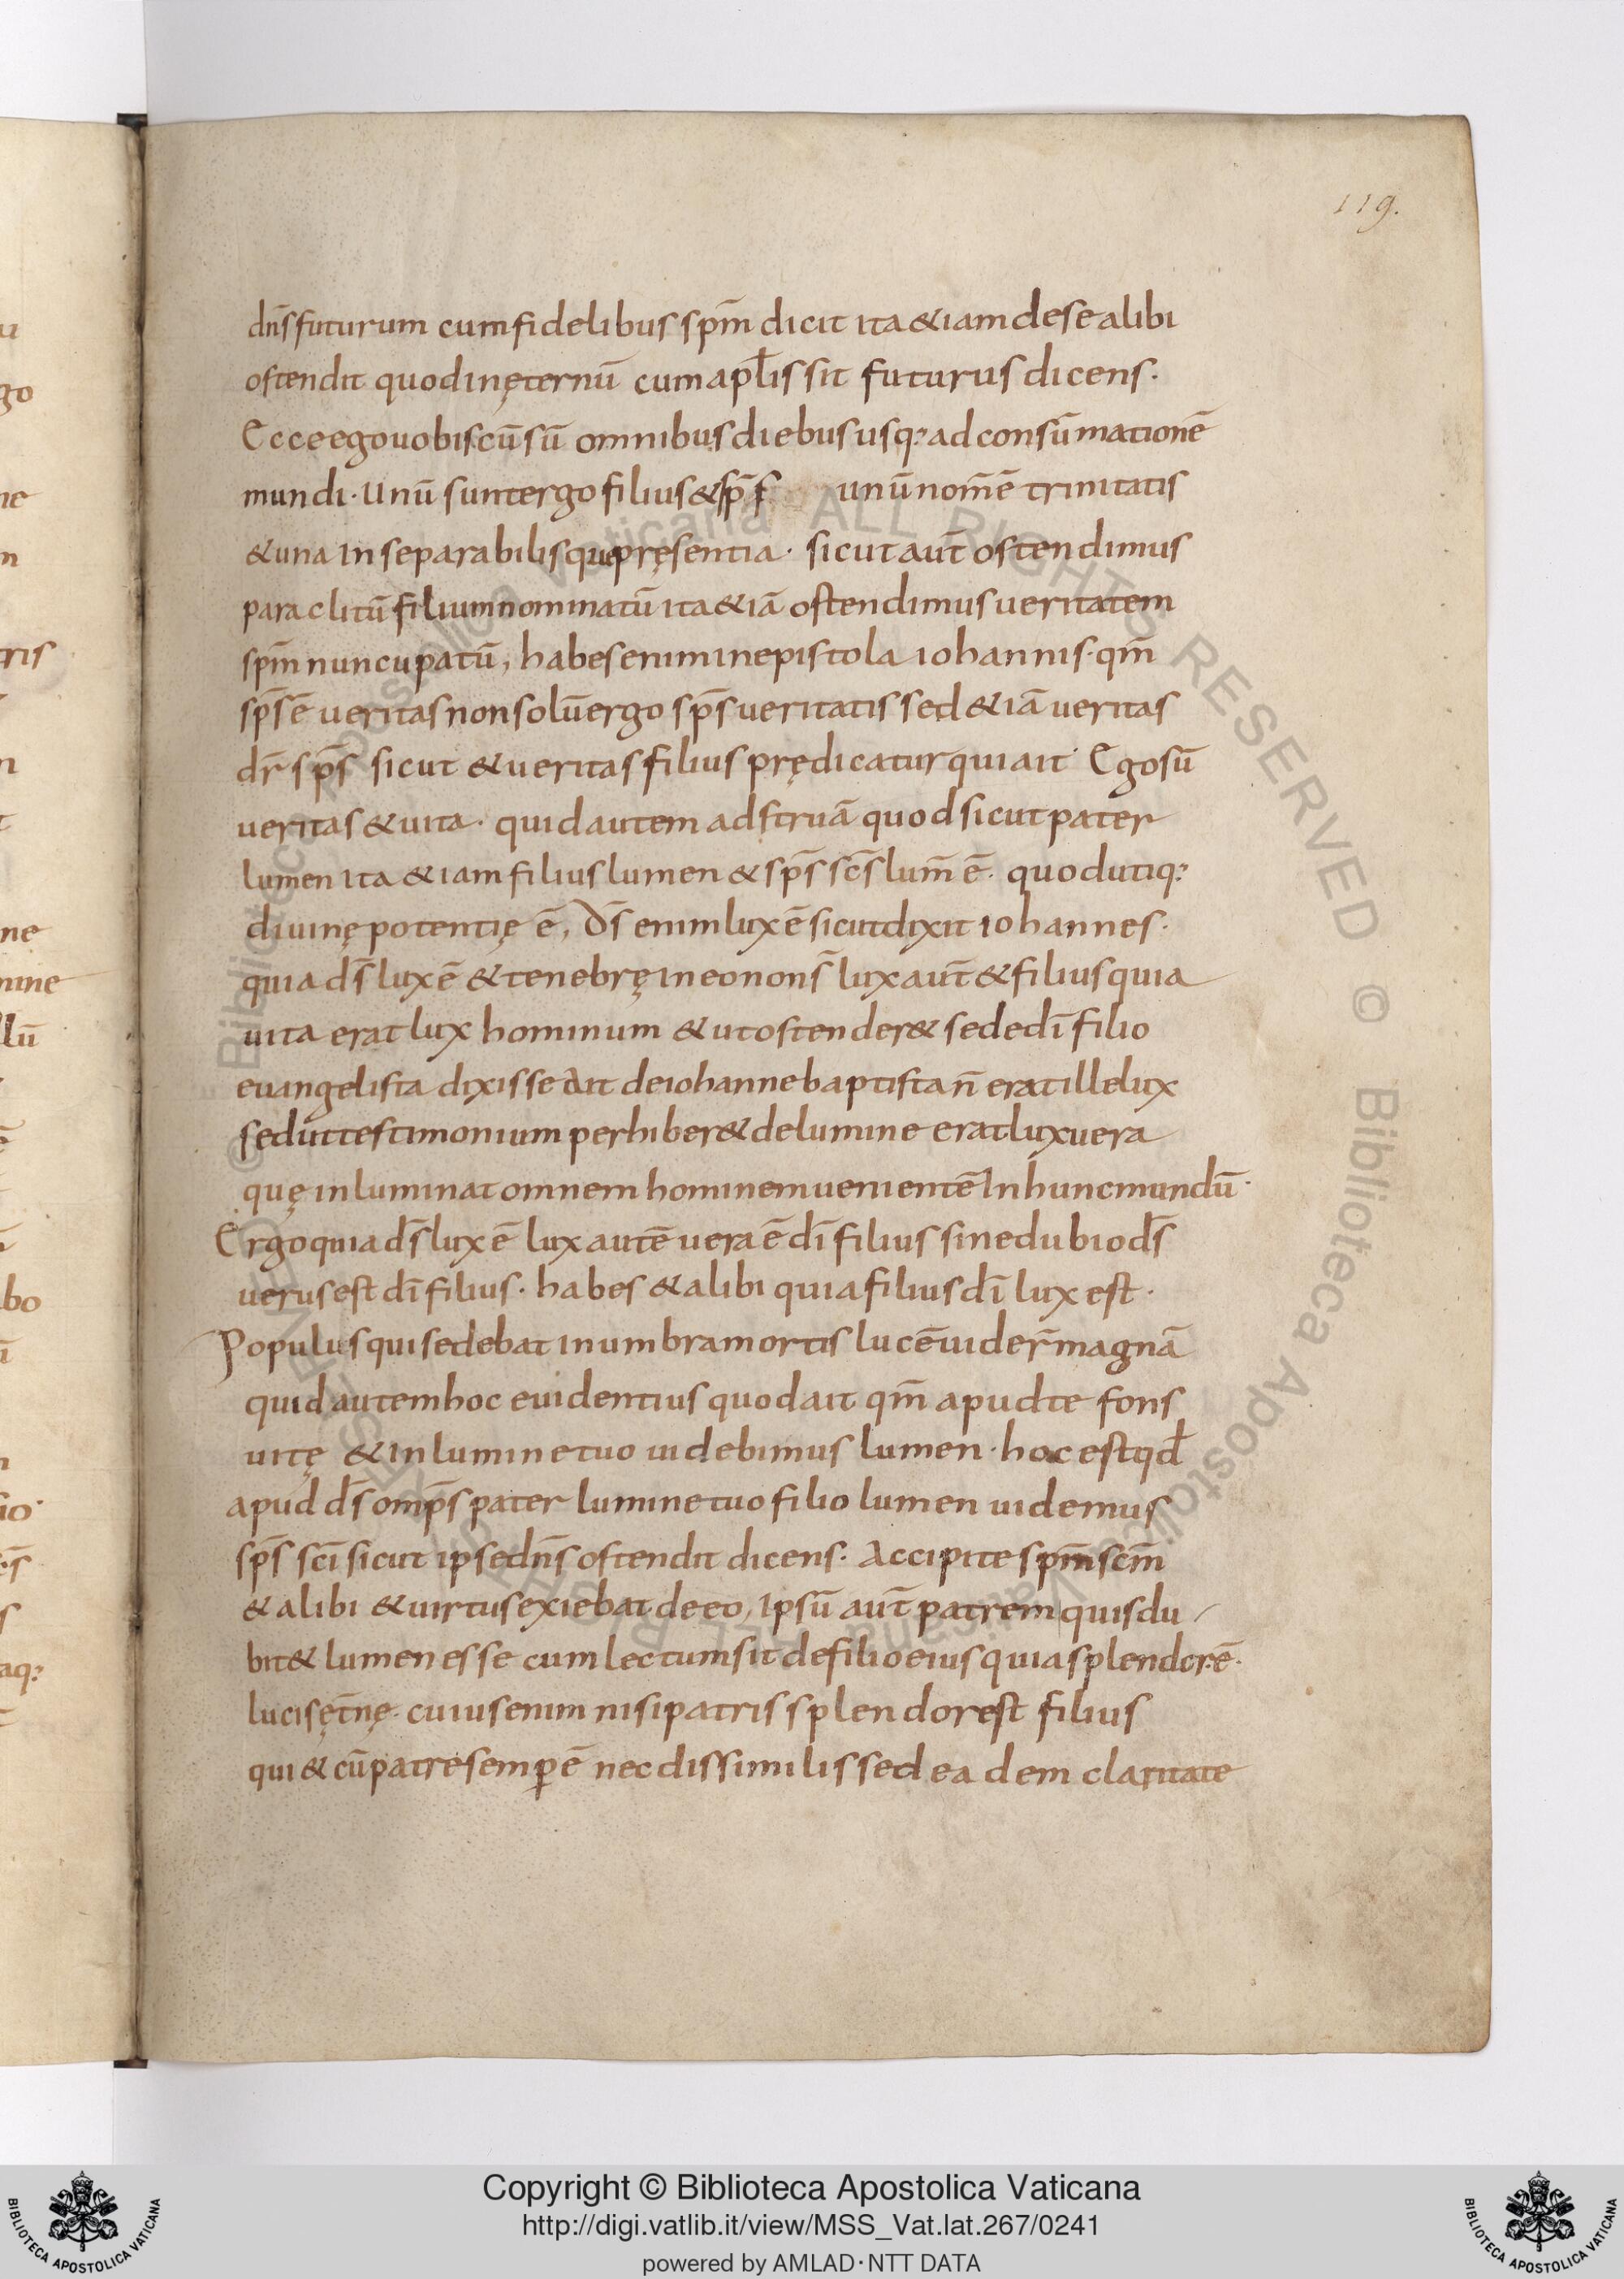 119.
dn̄s futurum cum fidelibus sp̄m dicit ita &iam de se alibi
ostendit quod in ęternū cum apl̄is sit futurus dicens·
Ecce ego uobiscū sū omnibus diebus usq; ad consūmationē
mundi· Unū sunt ergo filius & sp̄s unū nom̄ē trinitatis
& una inseparabilisque pręsentia· sicut aut̄ ostendimus
paraclitū filium nominatū ita &iā ostendimus ueritatem
sp̄m nuncupatū, habes enim in epistola iohannis· qm̄
sp̄s ē ueritas non solū ergo sp̄s ueritatis sed &iā ueritas
dr̄ sp̄s sicut & ueritas filius prędicatur qui ait· Ego sū
ueritas & uita· quid autem adstruā quod sicut pater
lumen ita &iam filius lumen & sp̄s sc̄s lum̄ ē· quod utiq;
diuinę potentię ē, Ds̄ enim lux ē sicut dixit iohannes·
quia ds̄ lux ē & tenebrę in eo non s̄ lux aut̄ & filius quia
uita erat lux hominum & ut ostender& se de dī filio
euangelista dixisse Ait de iohanne baptista n̄ erat ille lux
sed ut testimonium perhiber& de lumine erat lux uera
quę inluminat omnem hominem uenientē In hunc mundū·
Ergo quia ds̄ lux ē lux autē uera ē dī filius sine dubio ds̄
uerus est dī filius· habes & alibi quia filius dī lux est·
Populus qui sedebat in umbra mortis lucē uider̄ magnā
quid autem hoc euidentius quod ait qm̄ apud te fons
uitę & In lumine tuo uidebimus lumen· hoc est qd̄
apud ds̄ omp̄s pater lumine tuo filio lumen uidemus
sp̄s scī sicut ipse dn̄s ostendit dicens· Accipite sp̄m sc̄m
& alibi & uirtus exiebat de eo, Ipsū aut̄ patrem quis du
bit& lumen esse cum lectum sit de filio eius quia splendor ē·
lucis ęt̄nę· cuius enim nisi patris splendor est filius
qui & cū patre semp̄ ē nec dissimilis sed eadem claritate
Copyright © Biblioteca Apostolica Vaticana
http://digi.vatlib.it/view/MSS_Vat.lat.267/0241
powered by AMLAD·NTT DATA